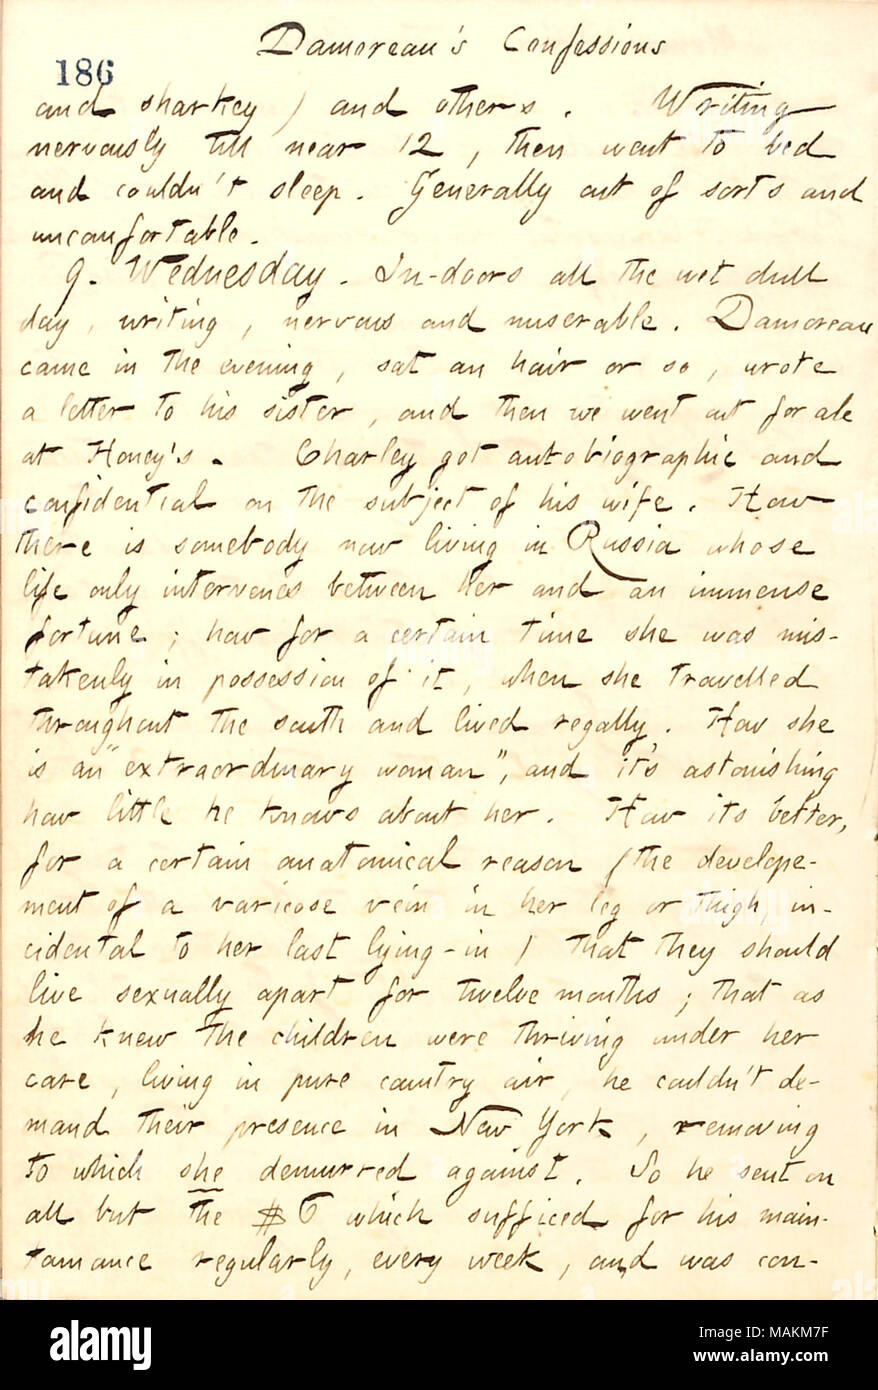 Damoreau's Confessions
186
and sharkey ) and others. Writing
nervously till near 12, then went to bed
and couldn't sleep. Generally out of sorts and
uncomfortable.
9. Wednesday. In-doors all the wet dull
day, writing, nervous and miserable. Damoreau
came in the evening, sat an hour or so, wrote
a letter to his sister, and then we went out for ale
at Honey's. Charley got autobiographic and
confidential on the subject of his wife. How
there is somebody now living in Russia whose
life only intervenes between her and an immense
fortune; how for a certain time she was mis-
takenly in possession of it, when she travelled
throughout the south and lived regally. How she
is an "extraordinary woman", and it's astonishing
how little he knows about her. How its better,
for a certain anatomical reason (the develope-
ment of a varicose vein in her leg or thigh, in-
cidental to her last lying-in ) that they should
live sexually apart for twelve months; that as
he knew the children were thriving under her
care, living in pure country air, he couldn't de-
mand their presence in New York, removing
to which she demurred against. So he sent on
all but the $6 which sufficed for his main-
tainance regularly, every week, and was con-
alamy
Image ID: MAKM7F
www.alamy.com